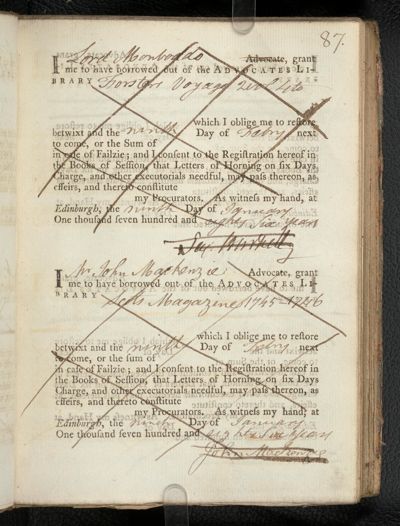 87.
I Lord Monboddo Advocate, grant
me to have borrowed out of the ADVOCATES LI-
BRARY Forsters Voyage 2 vol 4to
which I oblige me to reſtore
betwixt and the ninth Day of Febry next
to come, or the Sum of
in caſe of Failzie; and I conſent to the Regiſtration hereof in
the Books of Seſſion, that Letters of Horning on ſix Days
Charge, and other executorials needful, may paſs thereon, as
effeirs, and thereto conſtitute
my Procurators. As witneſs my hand, at
Edinburgh, the ninth Day of January
One thouſand ſeven hundred and eighty Six years
I Mr John Mackenzie Advocate, grant
me to have borrowed out of the ADVOCATES LI-
BRARY Scots Magazine 1745-
which I oblige me to reſtore
betwixt and the ninth Day of Febry next
to come, or the ſum of
in caſe of Failzie; and I conſent to the Regiſtration hereof in
the Books of Seſſion, that Letters of Horning, on ſix Days
Charge, and other executorials needful, may paſs thereon, as
effeirs, and thereto conſtitute
my Procurators. As witneſs my hand, at
Edinburgh, the ninth Day of January
One thouſand ſeven hundred and eighty Six years
John Mackenzie